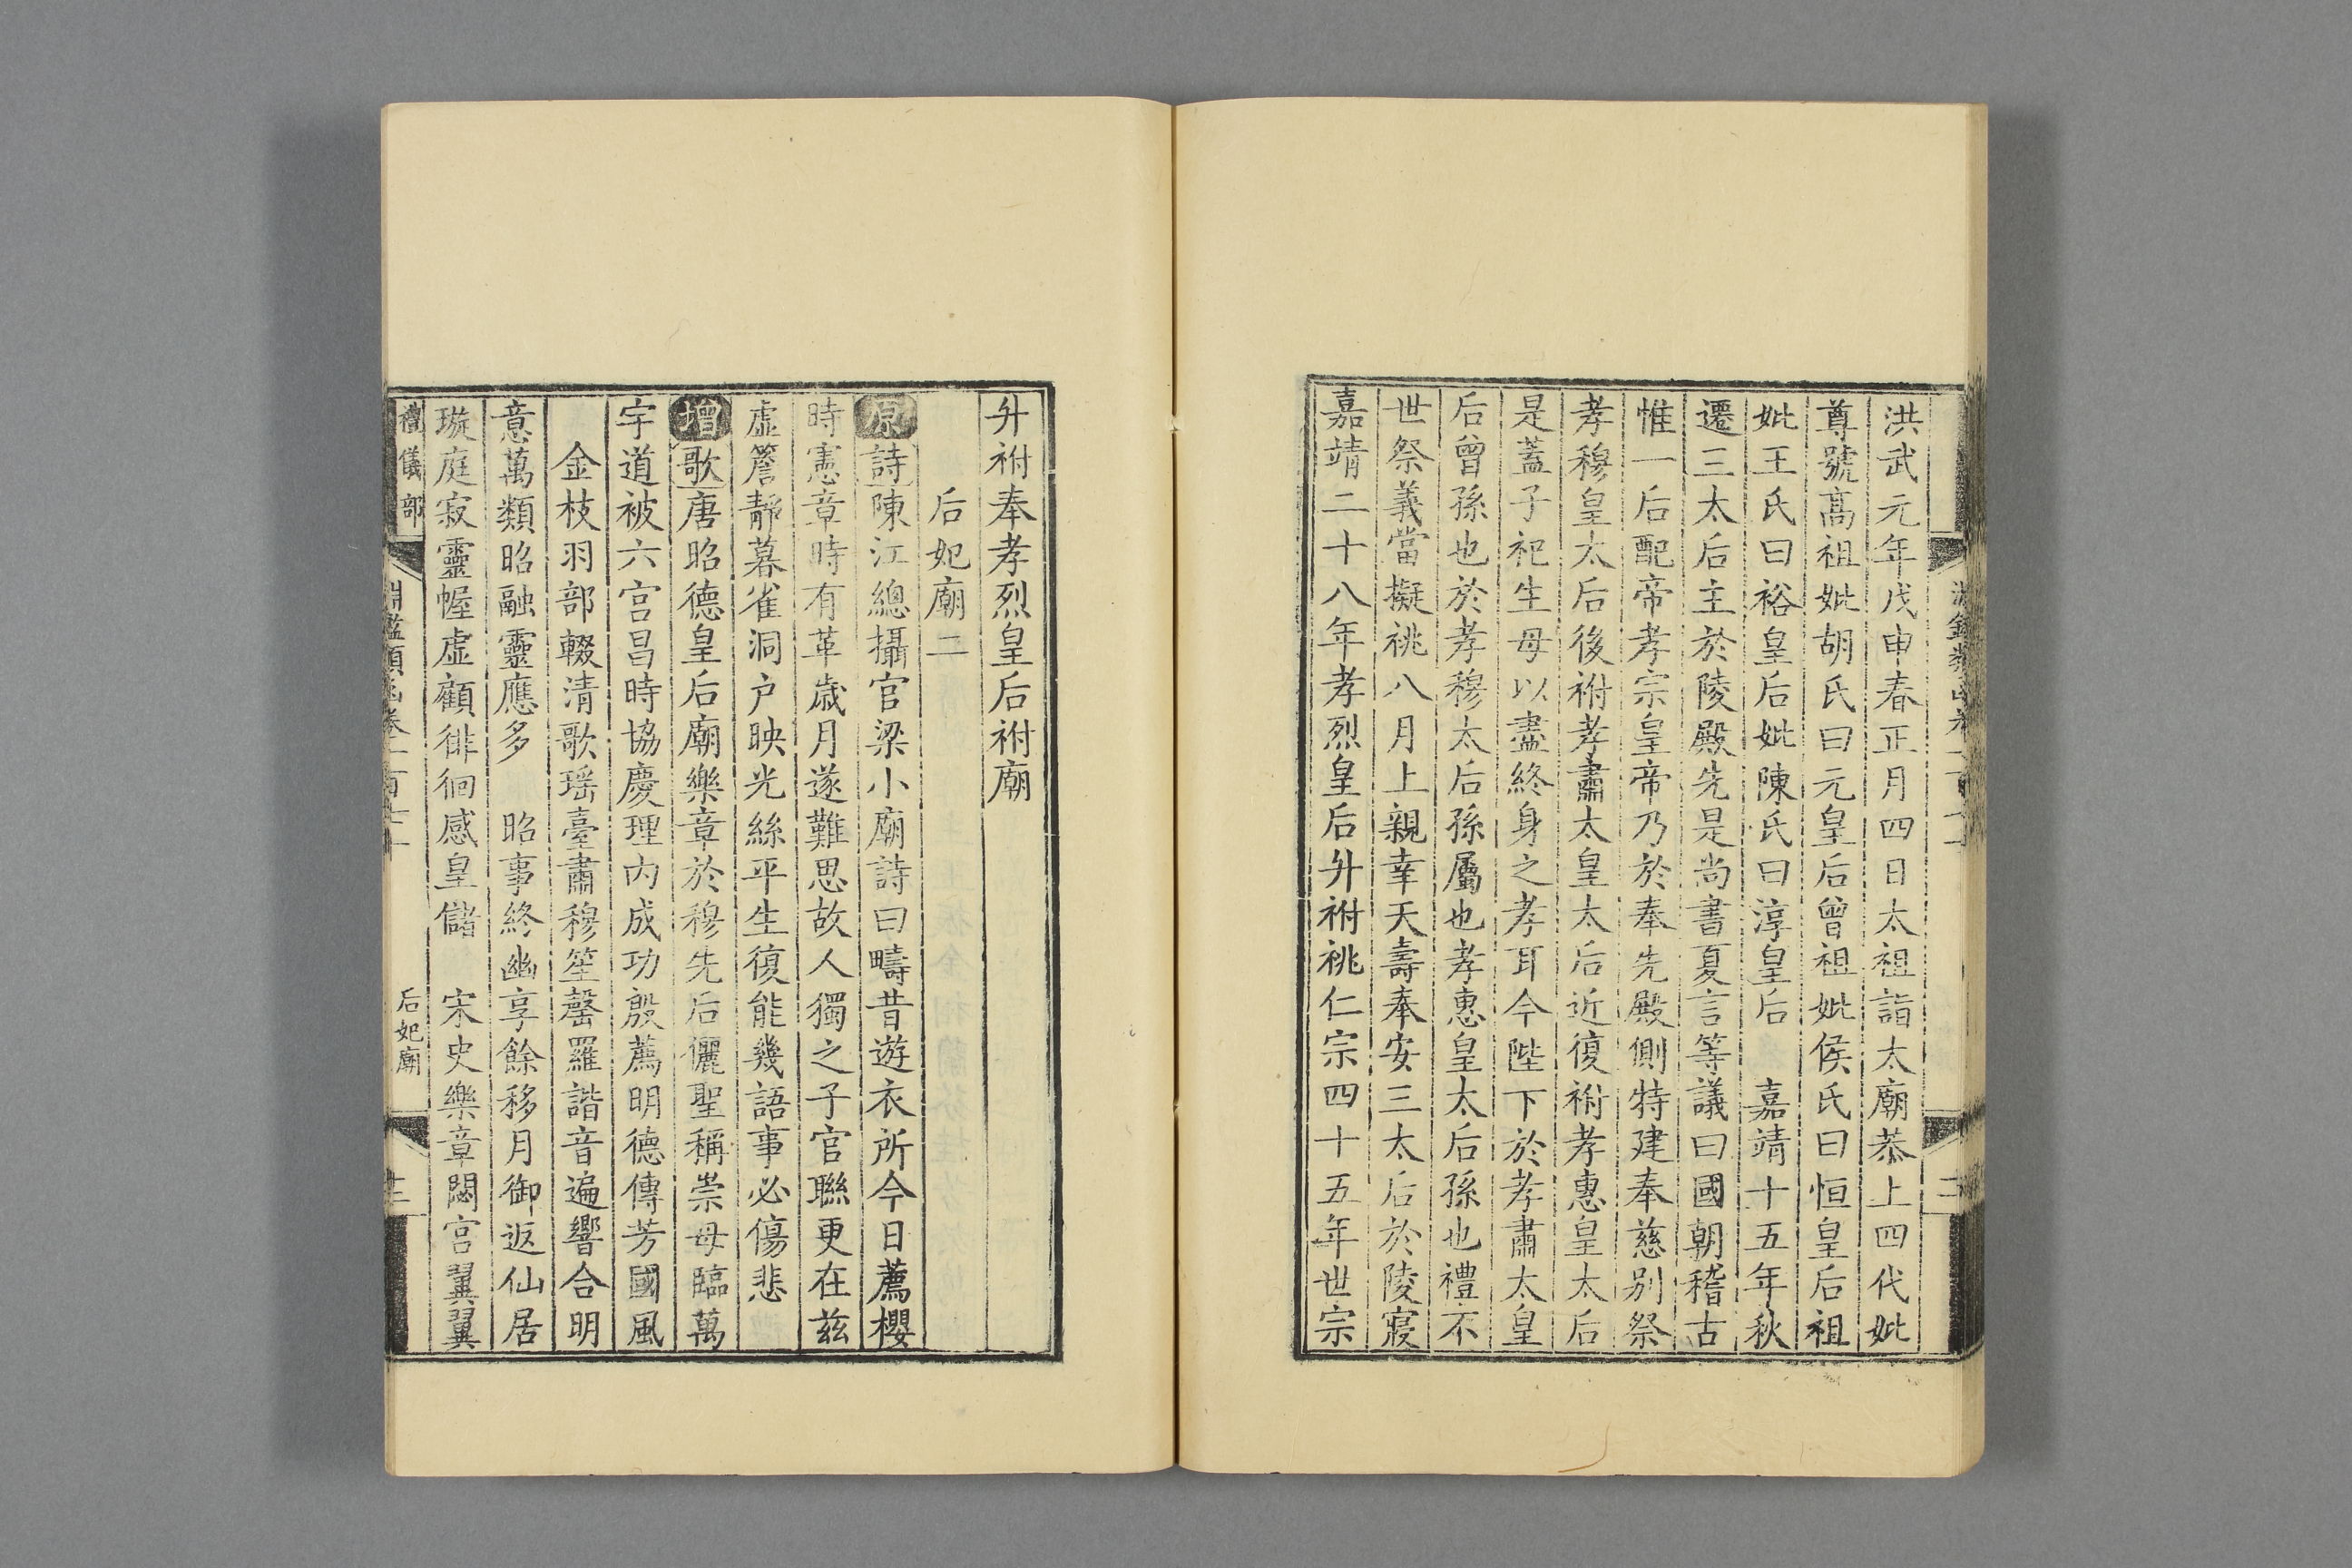 洪武元年戊申春正月四日太祖詣太廟恭上四代妣
尊號高祖妣胡氏曰元皇后曾祖妣侯氏曰恒皇后祖
妣王氏曰裕皇后妣陳氏曰淳皇后 嘉靖十五年秋
遷三太后主於陵殿先是尚書夏言等議曰國朝稽古
惟一后配帝孝宗皇帝乃於奉先殿側特建奉慈別祭
孝穆皇太后後祔孝肅太皇太后近復祔孝惠皇太后
是蓋子祀生母以盡終身之孝耳今陛下於孝肅太皇
后曾孫也於孝穆太后孫屬也孝惠皇太后孫也禮不
世祭義當擬祧八月上親幸天壽奉安三太后於陵寢
嘉靖二十八年孝烈皇后升祔祧仁宗四十五年世宗
升祔奉孝烈皇后祔廟
后妃廟二
原詩陳江總攝官梁小廟詩曰疇昔遊衣所今日薦櫻
時憲章時有革歲月遂難思故人獨之子官聯更在兹
虛簷靜暮雀洞户映光絲平生復能幾語事必傷悲
增歌唐昭德皇后廟樂章於穆先后儷聖稱崇母臨萬
宇道被六宮昌時協慶理內成功殷薦明德傳芳國風
金枝羽部輟清歌瑶臺肅穆笙罄羅諧音遍響合明
意萬類昭融靈應多 昭事終幽享餘移月御返仙居
璇庭寂靈幄虛顧徘徊感皇儲 宋史樂章閟宮翼翼
禮儀部
淵鑑類函卷一百七十
后妃廟
三